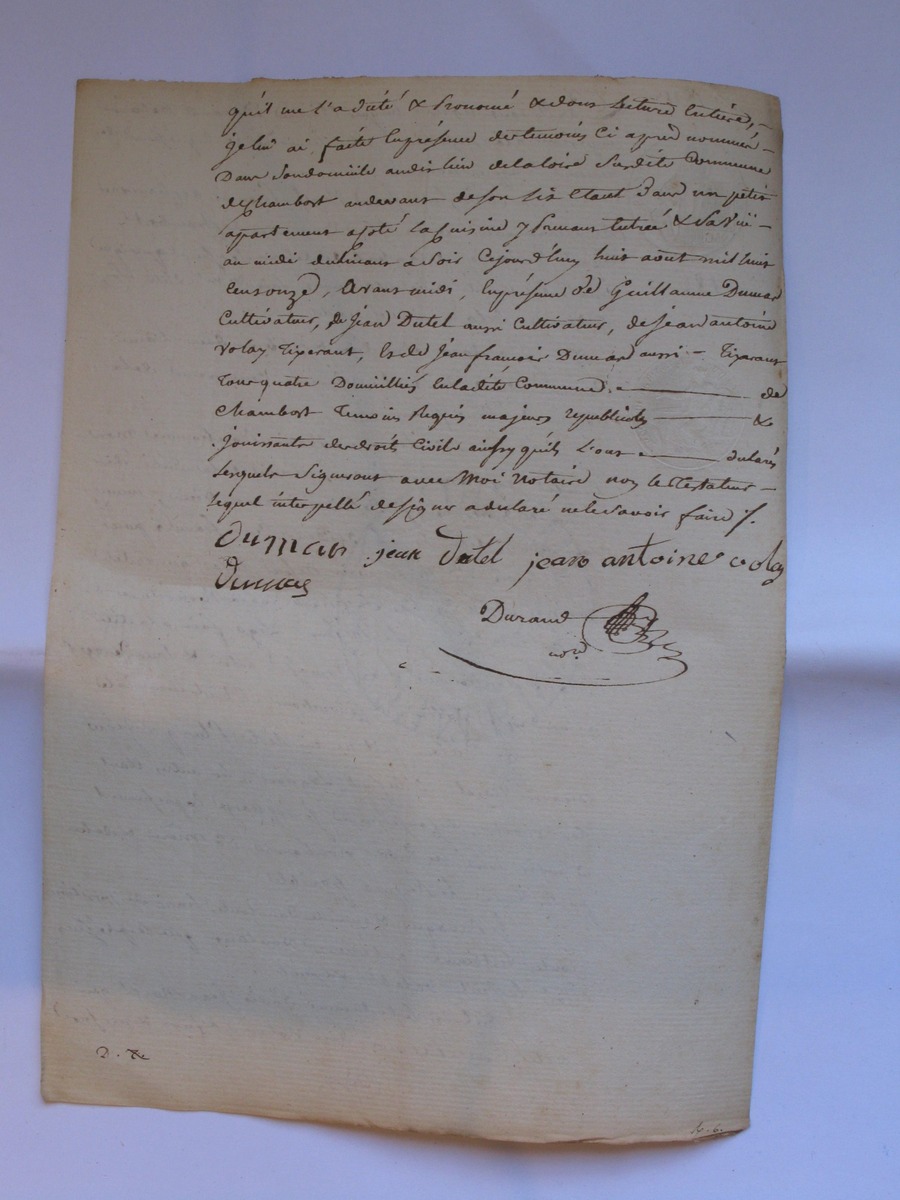 qu'il me l'a dicté & prononcé & dont lecture entière,
je lui ai faite en présence des temoins ci après nommés
Dans son domicile audit lieu de la loire susdite Commune
de Chambost au devant de son lit étant dans un petit
apartement a coté la Cuisine y prenant entrée & sa vüe
au midi du levant a soir Cejourd'huy huit aout mil huit
cens onze, Avant midi, en présence de Guillaume Dumas
Cultivateur, de Jean Dutel aussi Cultivateur, de Jean antoine
volay Tixerant, & de Jean francois Dumas aussi Tixerant
Tous quatre Domiciliés en ladite Commune de
Chambost Temoins Requis majeurs republicoles &
Jouissants des droits Civils ainsy qu'ils l'ont déclaré
Lesquels signeront avec Moi Notaire non le Testateur
lequel interpellé de signer a declaré ne le savoir faire /.
dumas jean dutel jean antoine volay
Dumas
Durand
no.re
D.